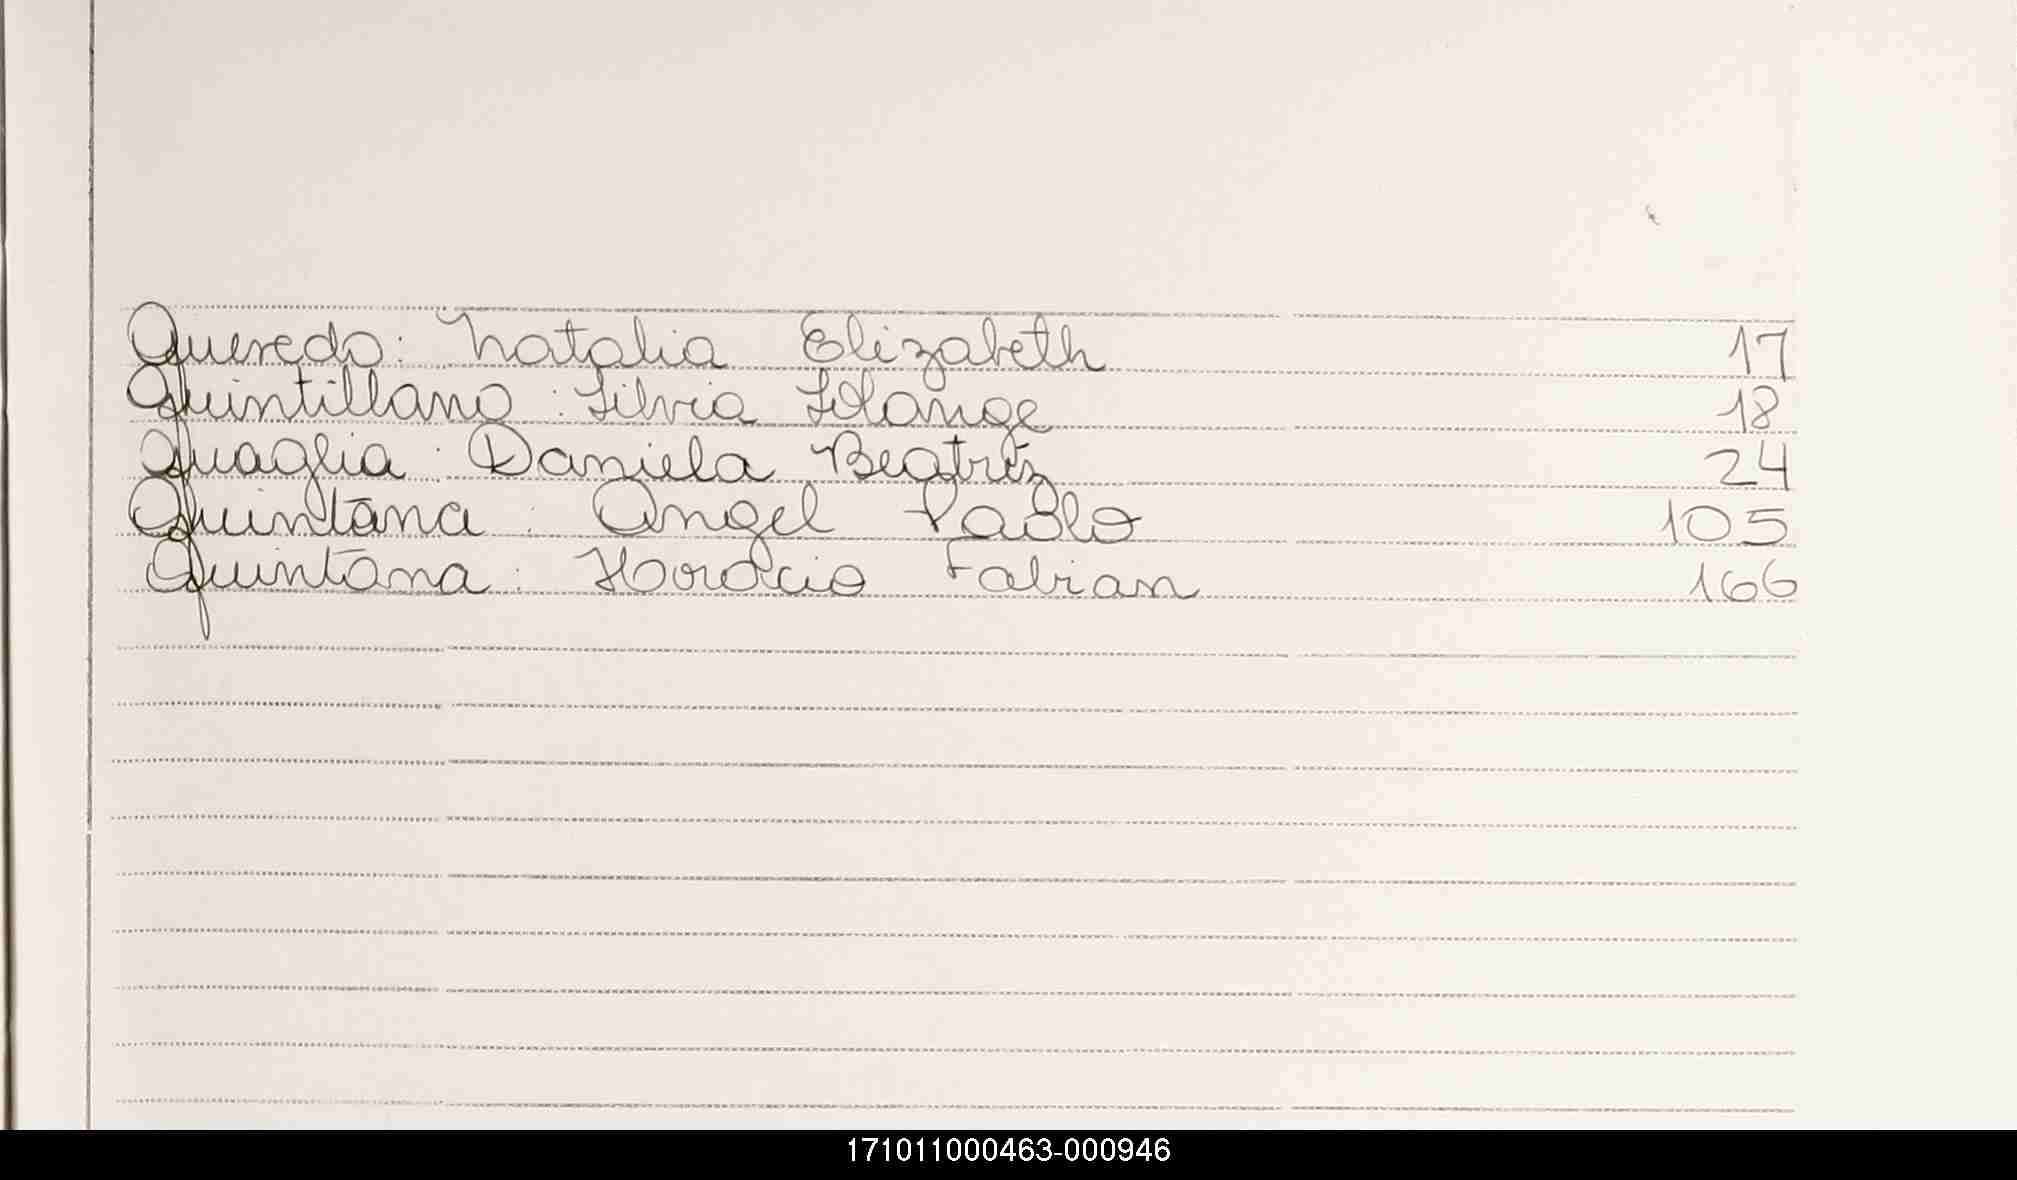 Queredo: Natalia Elizabeth 17
Quintillano: Silvia Solange 18
Quaglia: Daniela Beatriz 24
Quintana: Angel Pablo 105
Quintana: Horacio Fabian 166
171011000463-000946